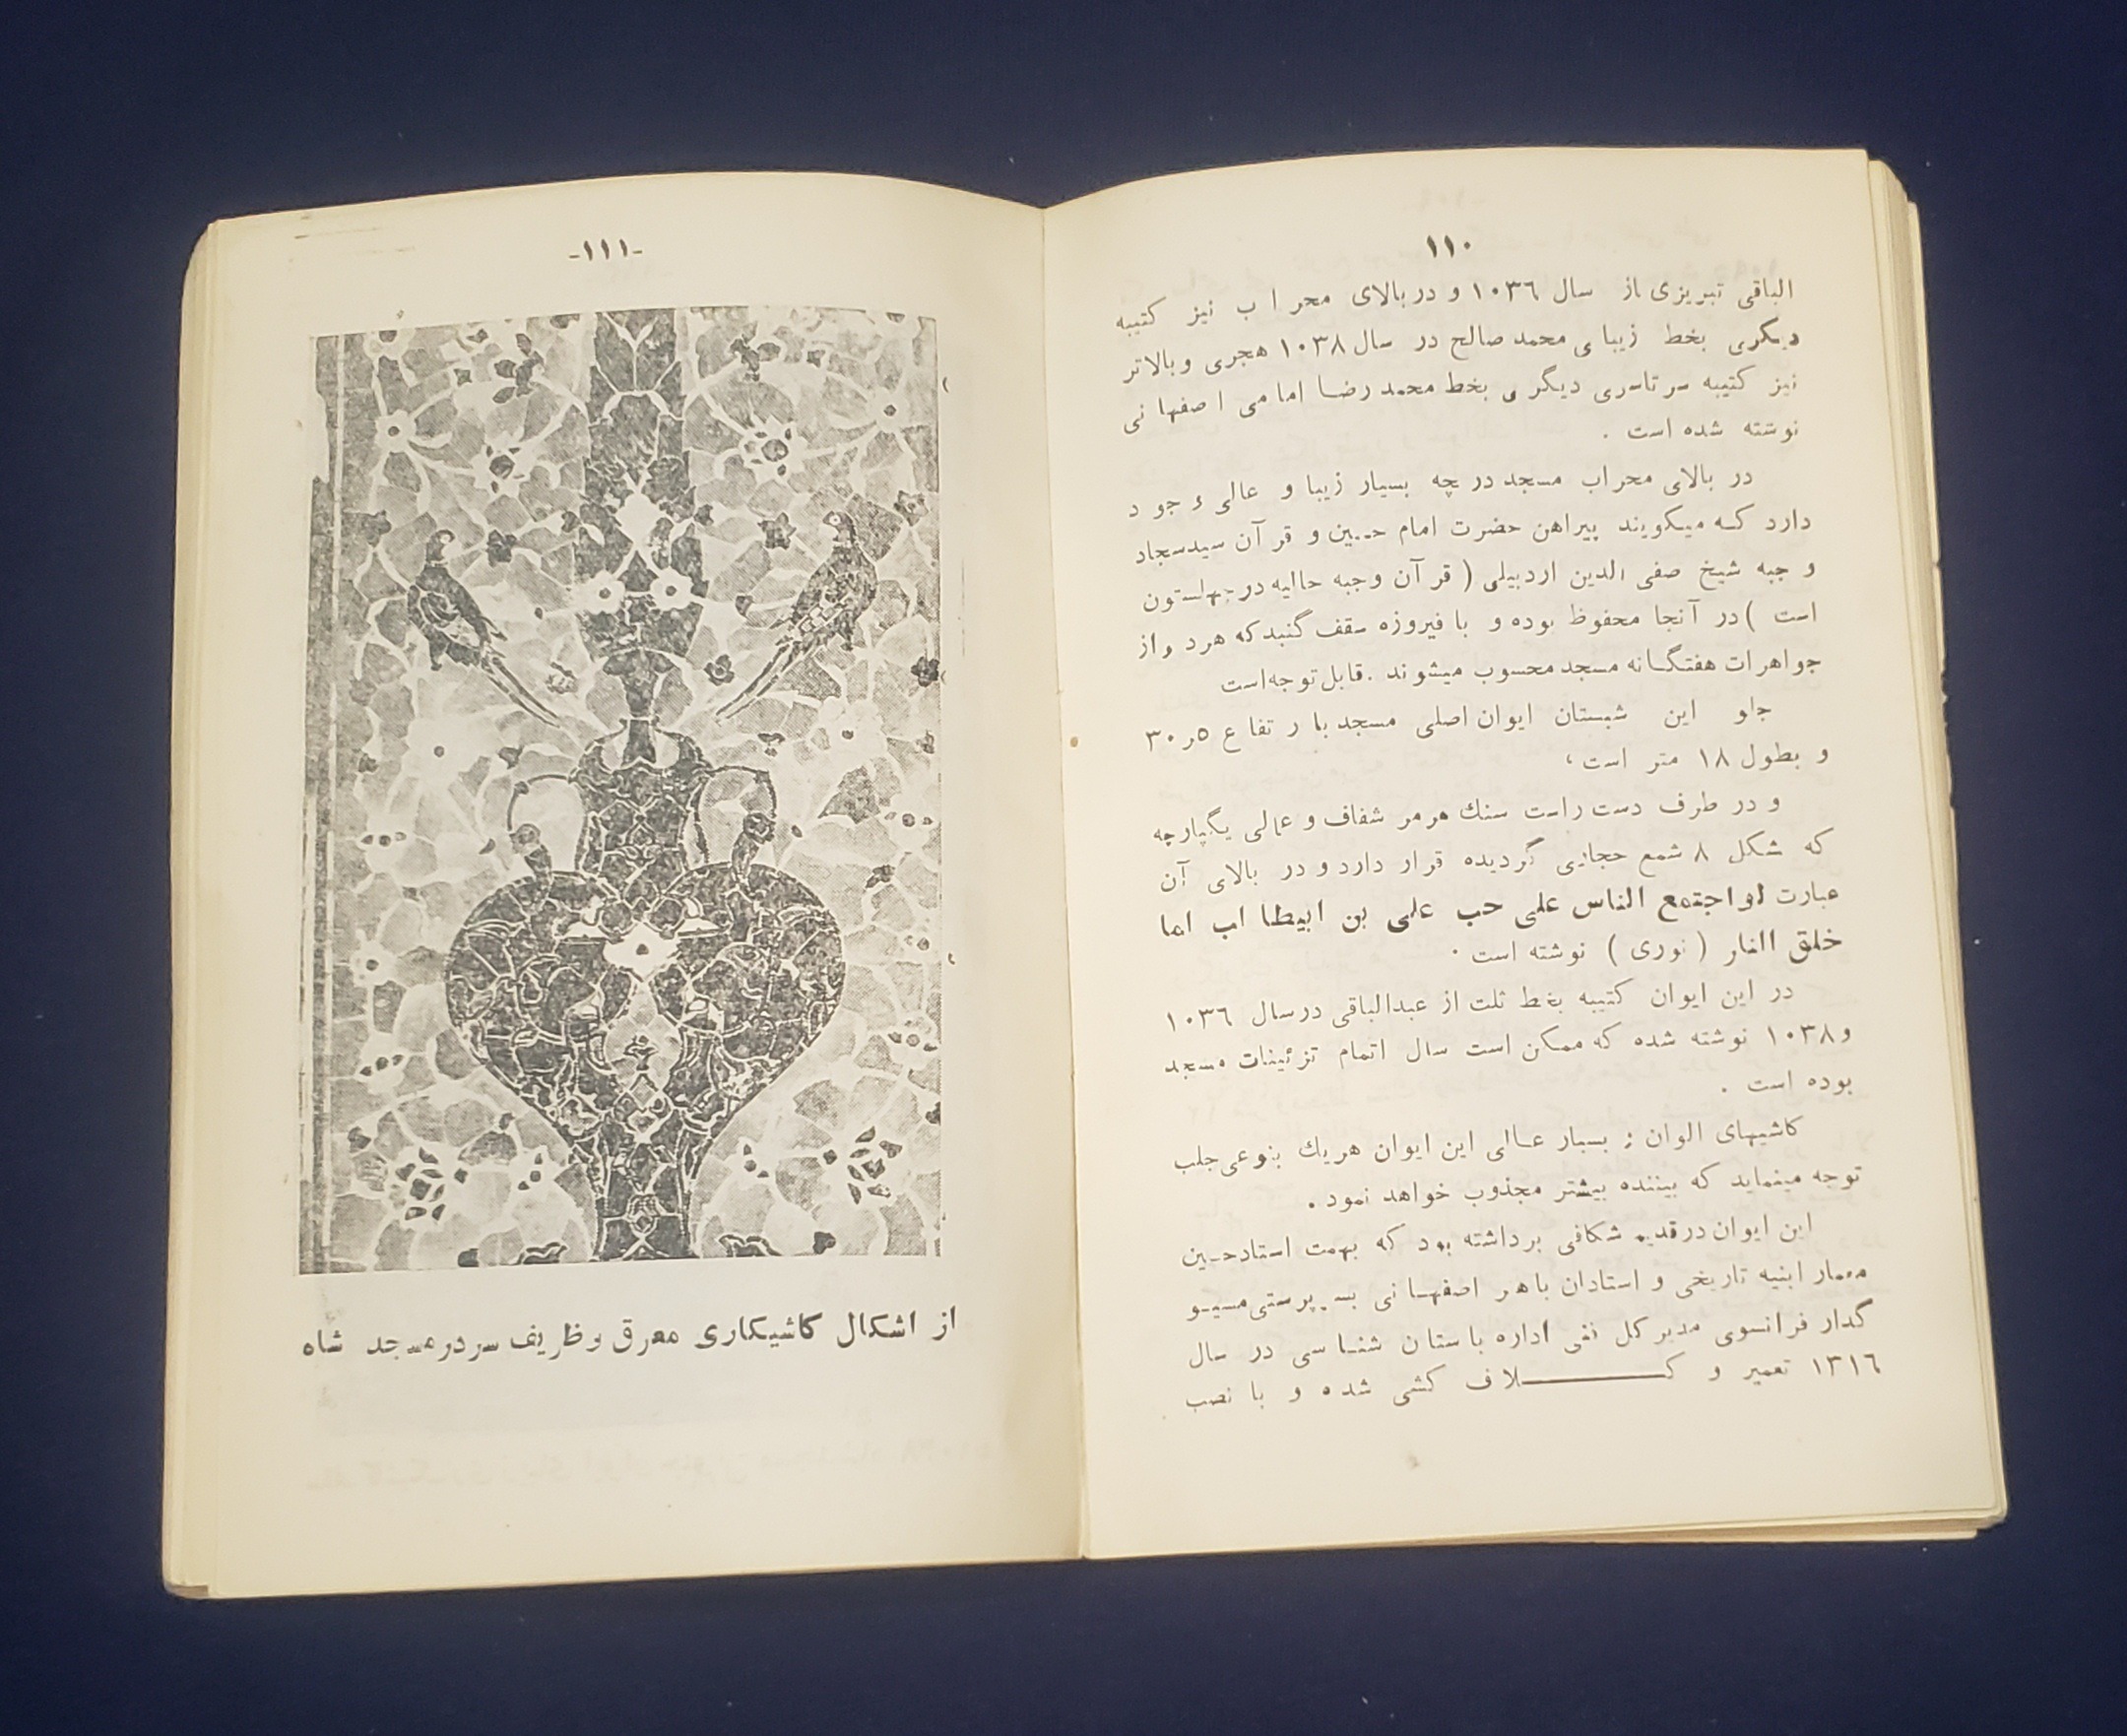 ۱۱۰
الباقی تبریزی از سال ۱۰۳۶ و در بالای محراب نیز کتیبه
دیگری بخط زیبای محمد صالح در سال ۱۰۳۸ هجری و بالاتر
نیز کتیبه سرتاسری دیگری بخط محمد رضا امامی اصفهانی
نوشته شده است .
در بالای محراب مسجد درچه بسیار زیبا و عالی وجود
دارد که میگویند پیراهن حضرت امام حسین و قرآن سیدسجاد
و جبه شیخ صفی الدین اردبیلی ( قرآن وجبه حالیه در چهلستون
است ) در آنجا محفوظ بوده و با فیروزه سقف گنبد که هردو از
جواهرات هفتگانه مسجد محسوب میشوند . قابل توجه است
جلو این شبستان ایوان اصلی مسجد با رتفاع ۵ر۳۰
و بطول ۱۸ متر است ،
و در طرف دست راست سنك مرمر شفاف و عالی یکپارچه
که شکل ۸ شمع حجاری گردیده قرار دارد و در بالای آن
عبارت لو اجتمع الناس علی حب علی بن ابیطا اب اما
خلق النار ( نوری ) نوشته است .
در این ایوان کتیبه بخط ثلت از عبدالباقی در سال ۱۰۳۶
و ۱۰۳۸ نوشته شده که ممکن است سال اتمام تزئینات مسجد
بوده است .
کاشیهای الوان ; بسیار عالی این ایوان هریك بنوعی جلب
توجه مینماید که بیننده بیشتر مجذوب خواهد نمود .
این ایوان در قدیم شکافی برداشته بود که بهمت استادحسین
معمار ابنیه تاریخی و استادان باهر اصفهانی بسرپرستی مسیو
گدار فرانسوی مدیر کل فنی اداره باستان شناسی در سال
۱۳۱۶ تعمیر و کـــــلاف کشی شده و با نصب
-۱۱۱-
از اشکال کاشیکاری معرق و ظریف سردر مسجد شاه